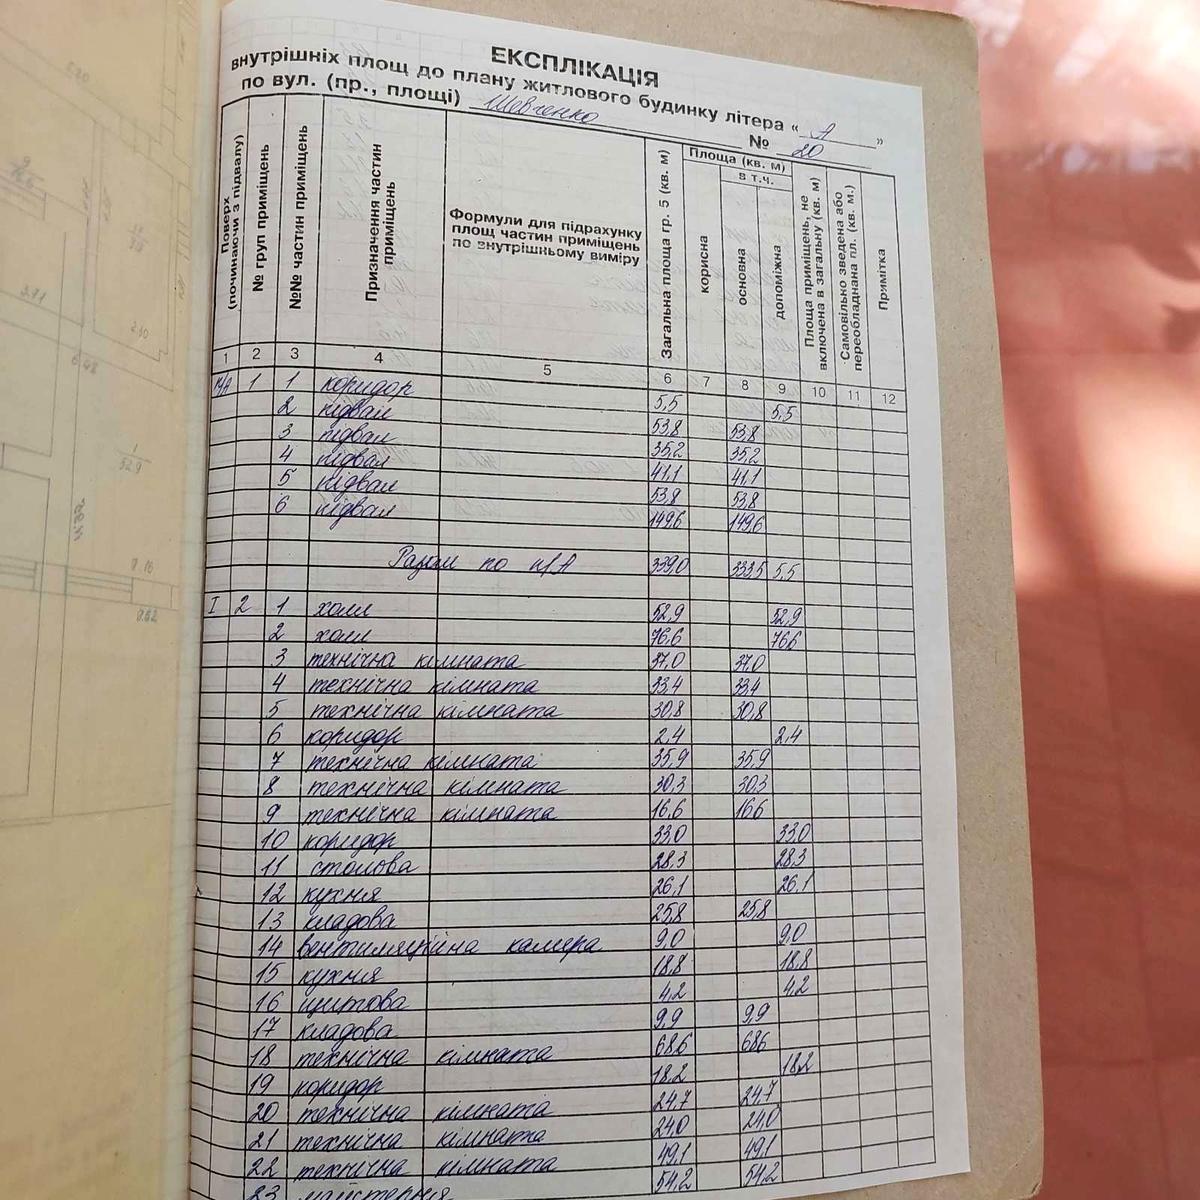 ЕКСПЛІКАЦІЯ
внутрішніх площ до плану житлового будинку літера “ А ”
по вул. (пр., площі) Шевченко № 20
Поверх (починаючи з підвалу)
№ груп приміщень
№№ частин приміщень
Призначення частин приміщень
Формули для підрахунку площ частин приміщень по внутрішньому виміру
Загальна площа гр. 5 (кв. м)
Площа (кв. м)
в т.ч.
корисна
основна
допоміжна
Площа приміщень, не включена в загальну (кв. м)
Самовільно зведена або переобладнана пл. (кв. м.)
Примітка
1 2 3 4 5 6 7 8 9 10 11 12
п/А 1 1 коридор 5,5 5,5
2 підвал 53,8 53,8
3 підвал 35,2 35,2
4 підвал 41,1 41,1
5 підвал 53,8 53,8
6 підвал 149,6 149,6
Разом по п/А 339,0 333,5 5,5
I 2 1 холл 52,9 52,9
2 холл 76,6 76,6
3 технічна кімната 37,0 37,0
4 технічна кімната 33,4 33,4
5 технічна кімната 30,8 30,8
6 коридор 2,4 2,4
7 технічна кімната 35,9 35,9
8 технічна кімната 30,3 30,3
9 технічна кімната 16,6 16,6
10 коридор 33,0 33,0
11 столова 28,3 28,3
12 кухня 26,1 26,1
13 кладова 25,8 25,8
14 вентиляційна камера 9,0 9,0
15 кухня 18,8 18,8
16 щитова 4,2 4,2
17 кладова 9,9 9,9
18 технічна кімната 68,6 68,6
19 коридор 18,2 18,2
20 технічна кімната 24,7 24,7
21 технічна кімната 24,0 24,0
22 технічна кімната 49,1 49,1
23 майстерня 54,2 54,2
3.71
2.10
6.48
1
52.9
0.16
0.62